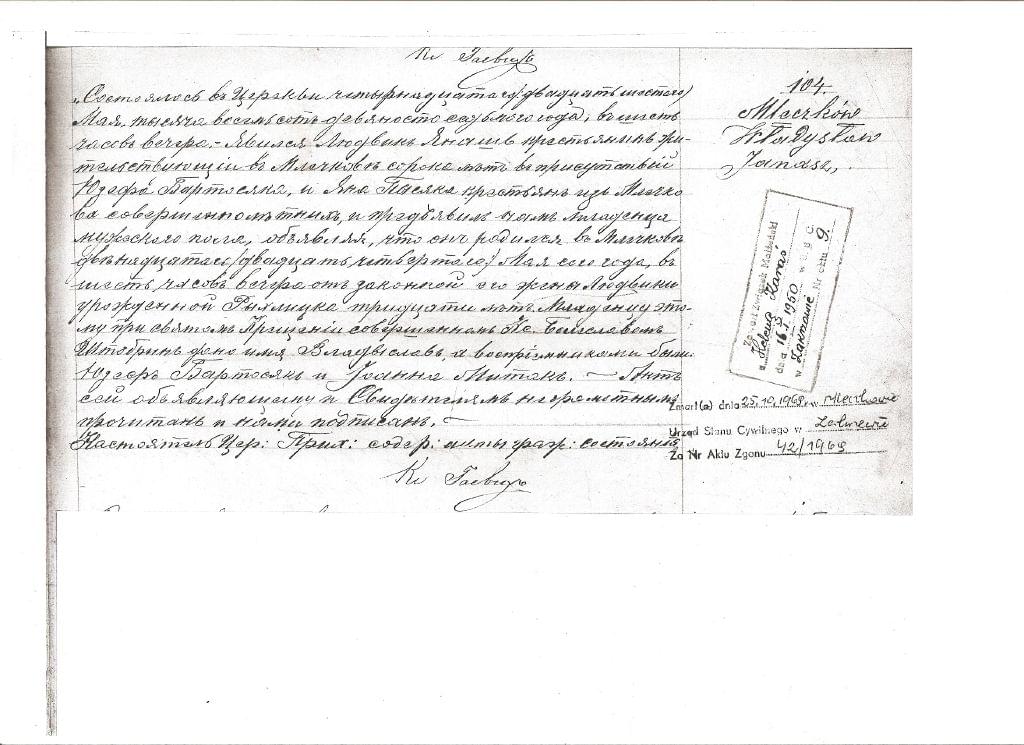 Кс Гаевицъ
Состоялось въ Церкви четырнадцатаго/двадцать шестаго/
Мая, тысяча восемьсотъ девяносто седьмаго года, въ шесть
часовъ вечера. – Явился Людвикъ Янашъ крестьянинъ жи-
тельствующій въ Млечковѣ сорока лѣтъ въ присутствіи
Юзефа Бартосяка, и Яна Пасяка крестьянъ изъ Млечко
ва совершеннолѣтныхъ, и предъявилъ намъ младенца
мужескаго пола, объявляя, что онъ родился въ Млечковѣ
двѣнадцатаго/двадцать четвертаго/ Мая сего года, въ
шесть часовъ вечера отъ законной его жены Людвики
урожденной тридцати лѣтъ. Младенцу это-
му при святомъ Крещеніи совершенномъ Кс. Болеславомъ
дано имя Владыславъ, а воспріемниками были
Юзефъ Бартосякъ и Іоанна – Актъ
сей объявляющему и Свидѣтелямъ неграмотнымъ
прочитанъ и нами подписанъ. –
Настоятель Цер: Прих: содер: акты граж: состоянія
Кс Гаевицъ
104
Mleczków
Władysław
Janasz,.
Zw. zw. Małżeński
z Helena Karaś
dnia 16.I.1950 w U S C
w Zakrzewie Nr aktu 9.
Zmarł(a) dnia 25.10.1969 w Mleczkowie
Urząd Stanu Cywilnego w Zakrzewie
Za Nr Aktu Zgonu 42/1969